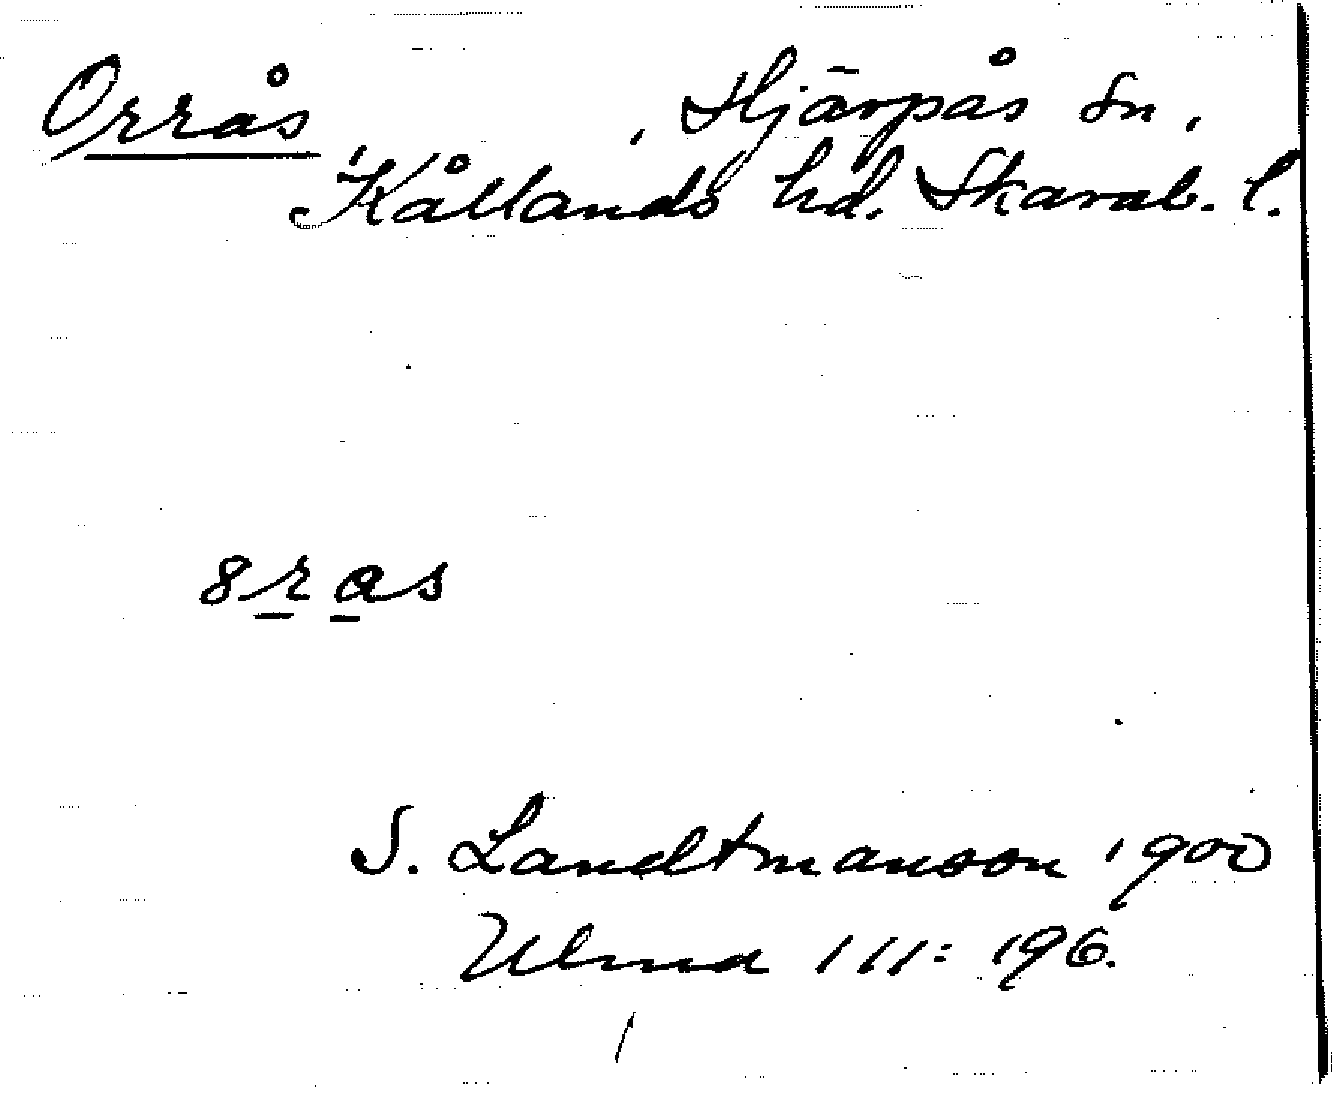 Orrås, Hjärpås sn,
Kållands hd. Skarab. l.
8ras
S. Landtmanson 1900
Ulma 111: 196.